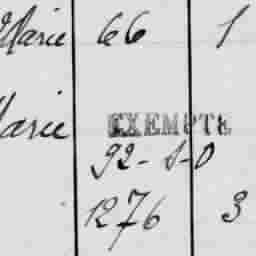 Marie 66 1
Marie EXEMPTÉ
92-S-D
1276 3